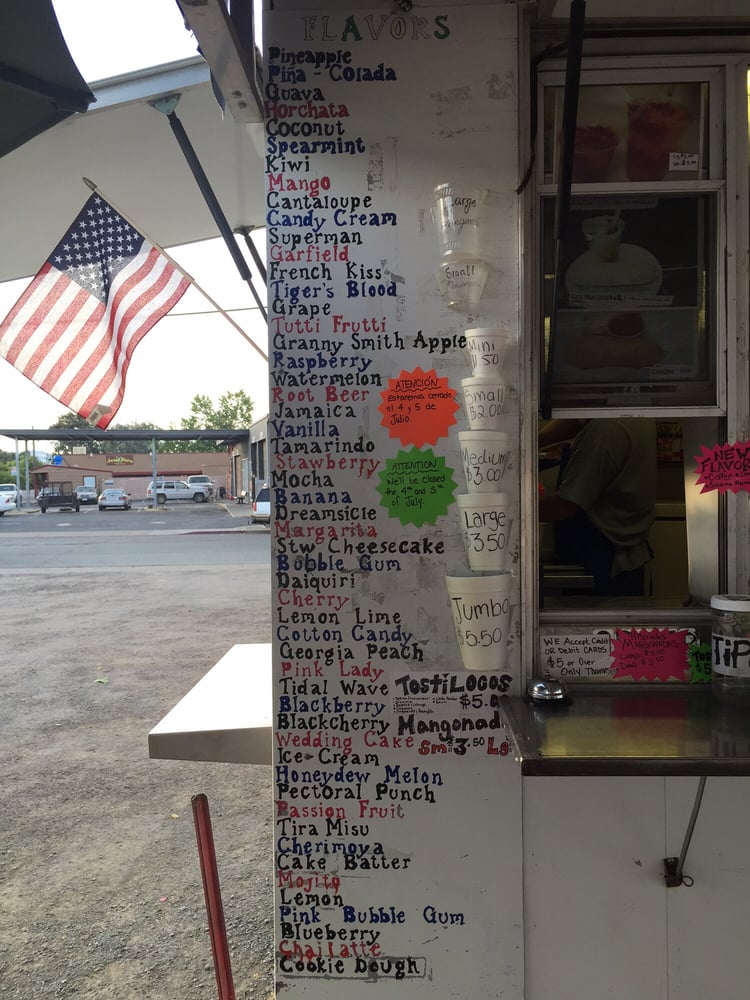 FLAVORS
Pineapple
Piña - Colada
Guava
Horchata
Coconut
Spearmint
Kiwi
Mango
Cantaloupe
Candy Cream
Superman
Garfield
French Kiss
Tiger's Blood
Grape
Tutti Frutti
Granny Smith Apple
Raspberry
Watermelon
Root Beer
Jamaica
Vanilla
Tamarindo
Stawberry
Mocha
Banana
Dreamsicle
Margarita
Stw Cheesecake
Bubble Gum
Daiquiri
Cherry
Lemon Lime
Cotton Candy
Georgia Peach
Pink Lady
Tidal Wave
Blackberry
Blackcherry
Wedding Cake
Ice-Cream
Honeydew Melon
Pectoral Punch
Passion Fruit
Tira Misu
Cherimoya
Cake Batter
Mojito
Lemon
Pink Bubble Gum
Blueberry
Chai Latte
Cookie Dough
Large
Small
Mini
$1.50
Small
$2.00
Medium
$3.00
Large
$3.50
Jumbo
$5.50
ATENCIÓN
Estaremos cerrado
el 4 y 5 de
Julio.
ATTENTION
We'll be closed
the 4th and 5th
of July.
TostiLocos
$5.0
Mangonad
Sm $3.50 Lg
NEW
FLAVOR
WE Accept Credit
OR Debit CARDS
$5 or Over
Only Thanks
MANGONADAS
TiP